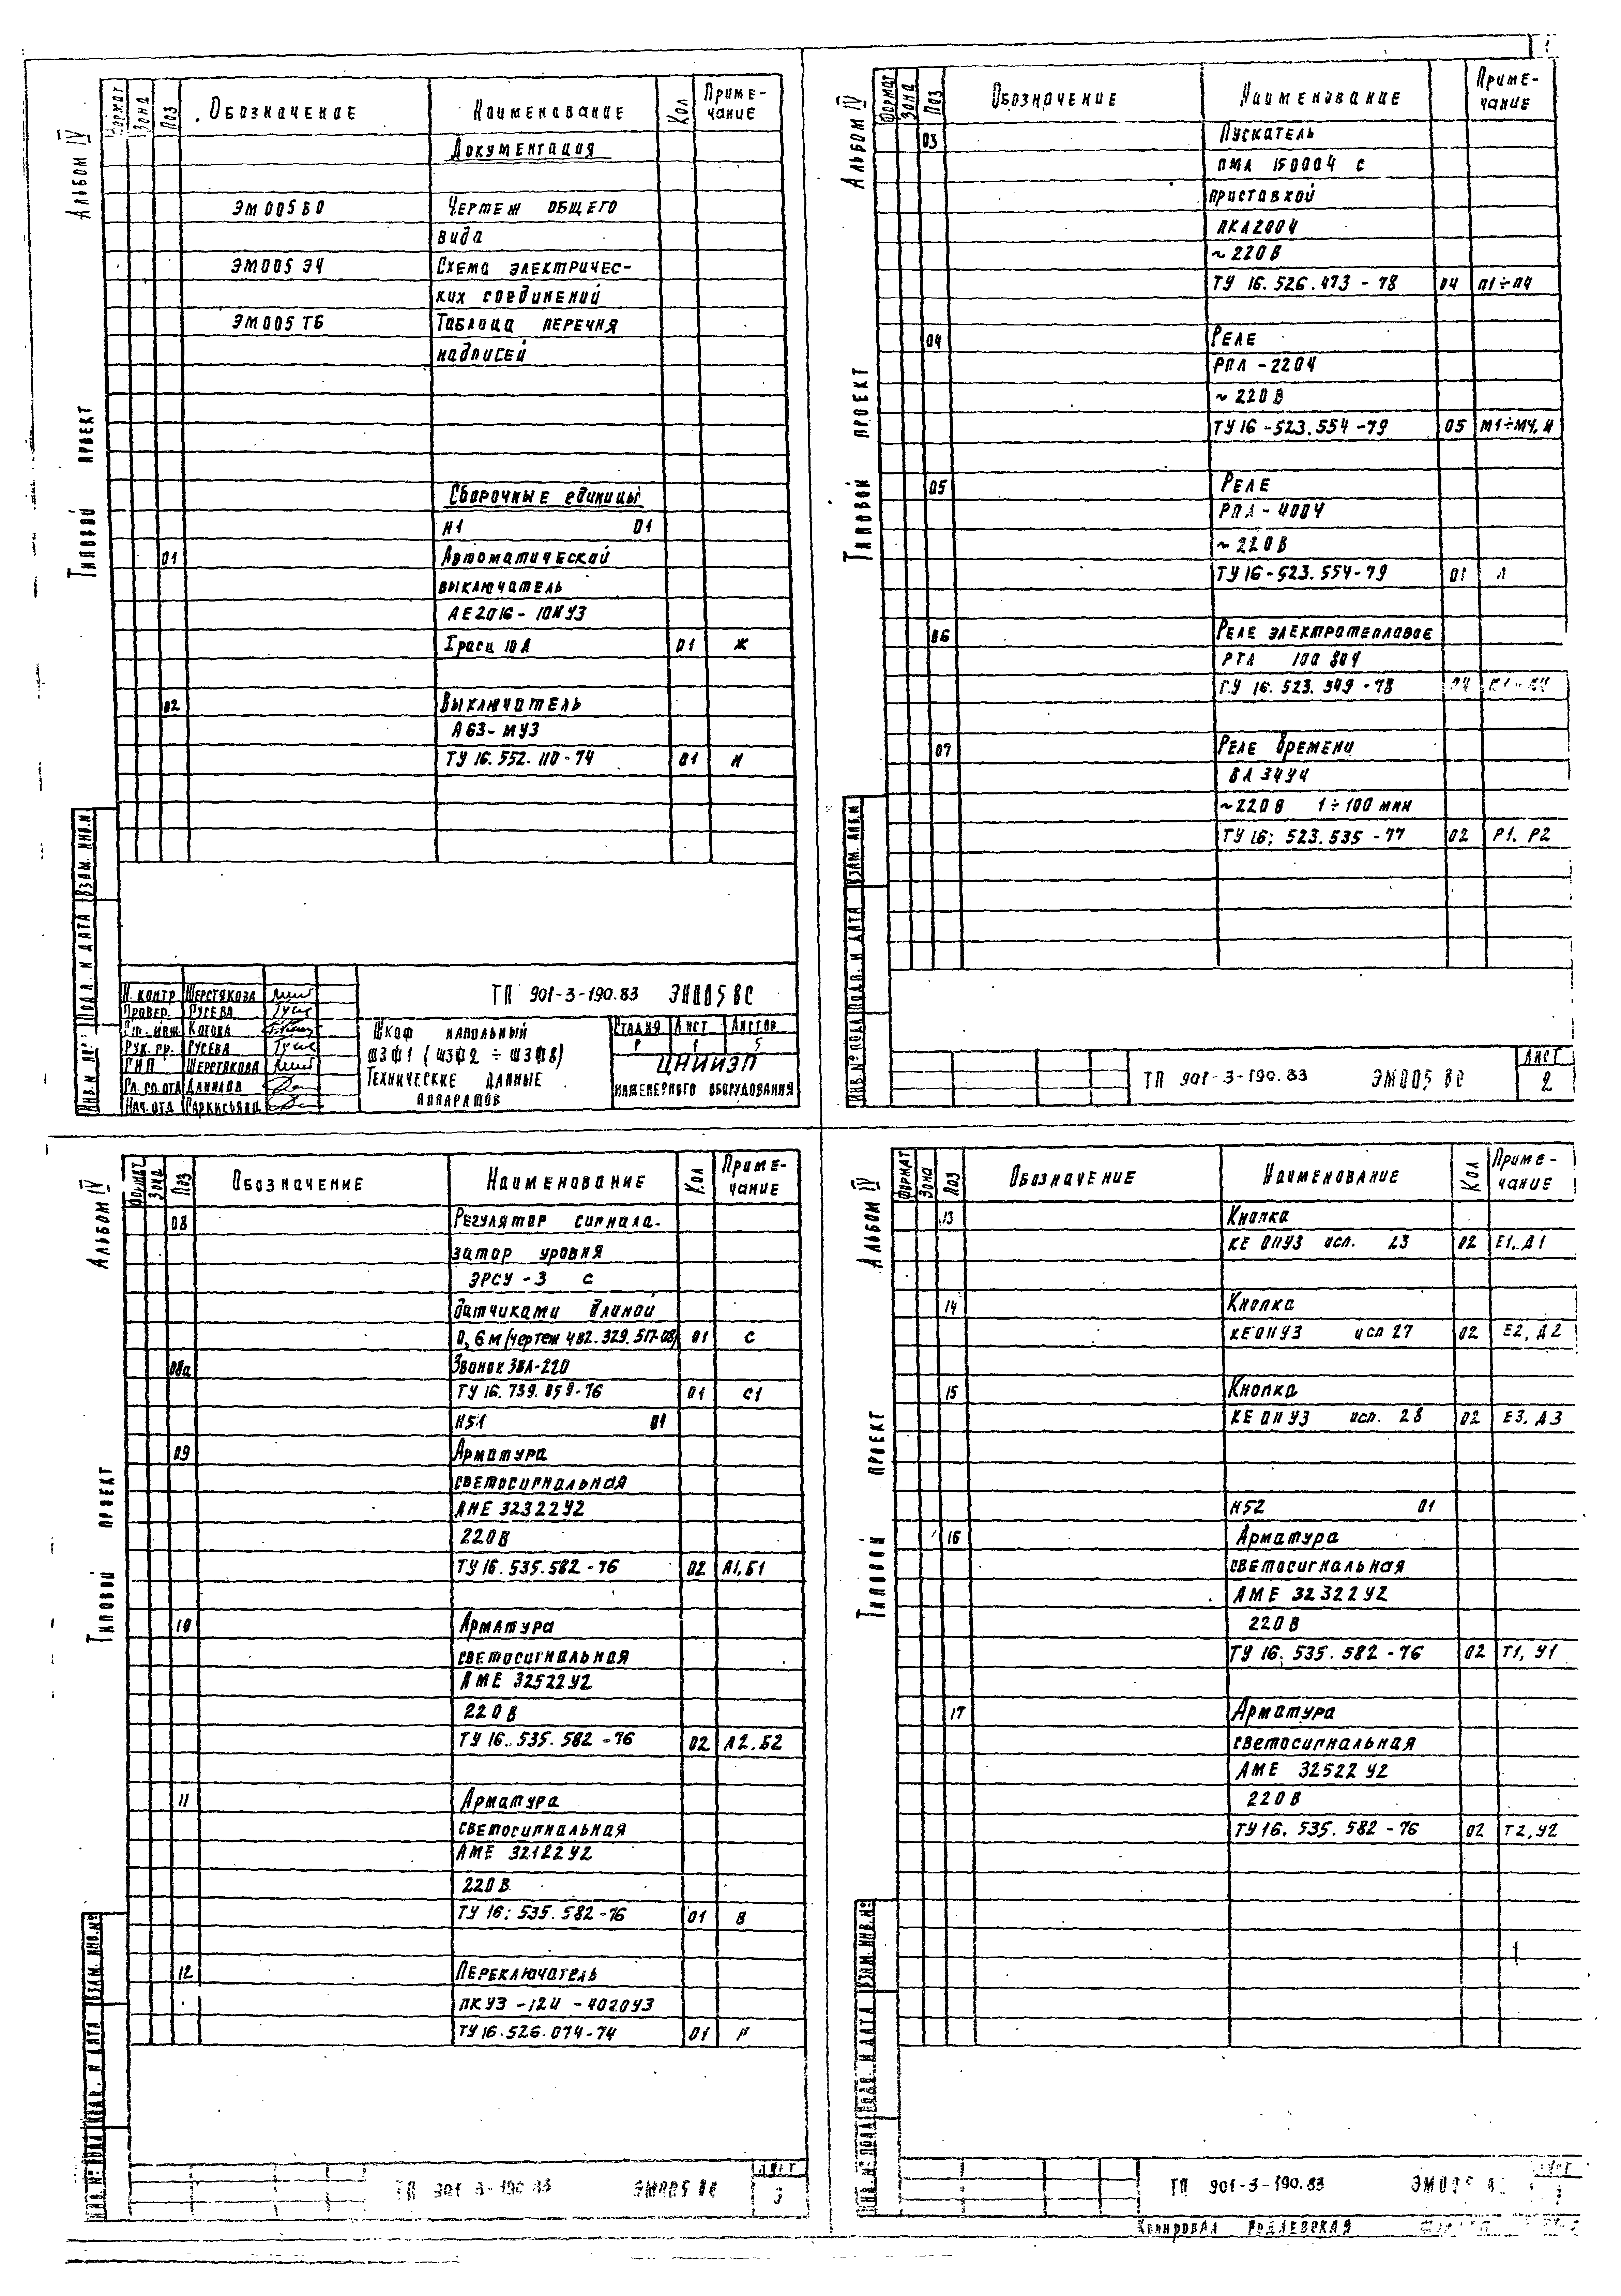 Альбом IV
Типовой проект
Формат Зона Поз Обозначение Наименование Кол Приме-
чание
Документация
ЭМ005В0 Чертеж общего
вида
ЭМ005 Э4 Схема электричес-
ких соединений
ЭМ005 ТБ Таблица перечня
надписей
Сборочные единицы
Н1 01
01 Автоматический
выключатель
АЕ2016-10НУ3
Iрасц 10А 01 Ж
02 Выключатель
А63-МУ3
ТУ 16.552.110-74 01 И
Взам. инв.№
Подп. и дата
Н. контр Шерстякова
Провер. Гусева
Котова
Рук. гр. Гусева
ГИП Шерстякова
Гл. сп. отд Данилов
Нач. отд Саркисьянц
ТП 901-3-190.83 ЭМ005 ВС
Шкаф напольный
ШЗФ1 (ШЗФ2 ÷ ШЗФ8)
Технические данные
аппаратов
Стадия Лист Листов
Р 1 5
ЦНИИЭП
инженерного оборудования
Альбом IV
Типовой проект
Формат Зона Поз Обозначение Наименование Приме-
чание
03 Пускатель
ПМЛ 150004 с
приставкой
ПКЛ2004
~220В
ТУ 16.526.473-78 04 П1÷П4
04 Реле
РПЛ-2204
~220В
ТУ16-523.554-79 05 М1÷М4, Н
05 Реле
РПЛ-4004
~220В
ТУ16-523.554-79 01 Л
06 Реле электротепловое
РТЛ 100 804
ТУ 16.523.549-78 04 К1÷К4
07 Реле времени
ВЛ 34У4
~220В 1÷100 мин
ТУ 16; 523.535-77 02 Р1. Р2
Взам. инв.№
Инв.№ подл Подп. и дата
ТП 901-3-190.83 ЭМ005 ВС
Лист
2
Альбом IV
Типовой проект
Формат Зона Поз Обозначение Наименование Кол Приме-
чание
08 Регулятор сигнала-
затор уровня
ЭРСУ-3 с
датчиками длиной
0,6м (чертеж 4В2.329.517-08) 01 С
08а Звонок ЗВЛ-220
ТУ 16.739.059-76 01 С1
Н51 01
09 Арматура
светосигнальная
АМЕ 32322У2
220В
ТУ16.535.582-76 02 А1,Б1
10 Арматура
светосигнальная
АМЕ 32522У2
220В
ТУ 16.535.582-76 02 А2.Б2
11 Арматура
светосигнальная
АМЕ 32122У2
220В
ТУ 16; 535.582-76 01 В
12 Переключатель
ПКУ3-12И-4020У3
ТУ16.526.074-74 01 Г
Инв.№ подл Подп. и дата Взам. инв.№
ТП 901-3-190.83 ЭМ005 ВС
Лист
3
Альбом IV
Типовой проект
Формат Зона Поз Обозначение Наименование Кол Приме-
чание
13 Кнопка
КЕ 011У3 исп. 23 02 Е1, Д1
14 Кнопка
КЕ011У3 исп 27 02 Е2, Д2
15 Кнопка
КЕ 011У3 исп. 28 02 Е3, Д3
Н52 01
16 Арматура
светосигнальная
АМЕ 32322У2
220В
ТУ 16.535.582-76 02 Т1, У1
17 Арматура
светосигнальная
АМЕ 32522У2
220В
ТУ16.535.582-76 02 Т2,У2
Инв.№ подл Подп. и дата Взам. инв.№
ТП 901-3-190.83 ЭМ005
Копировал